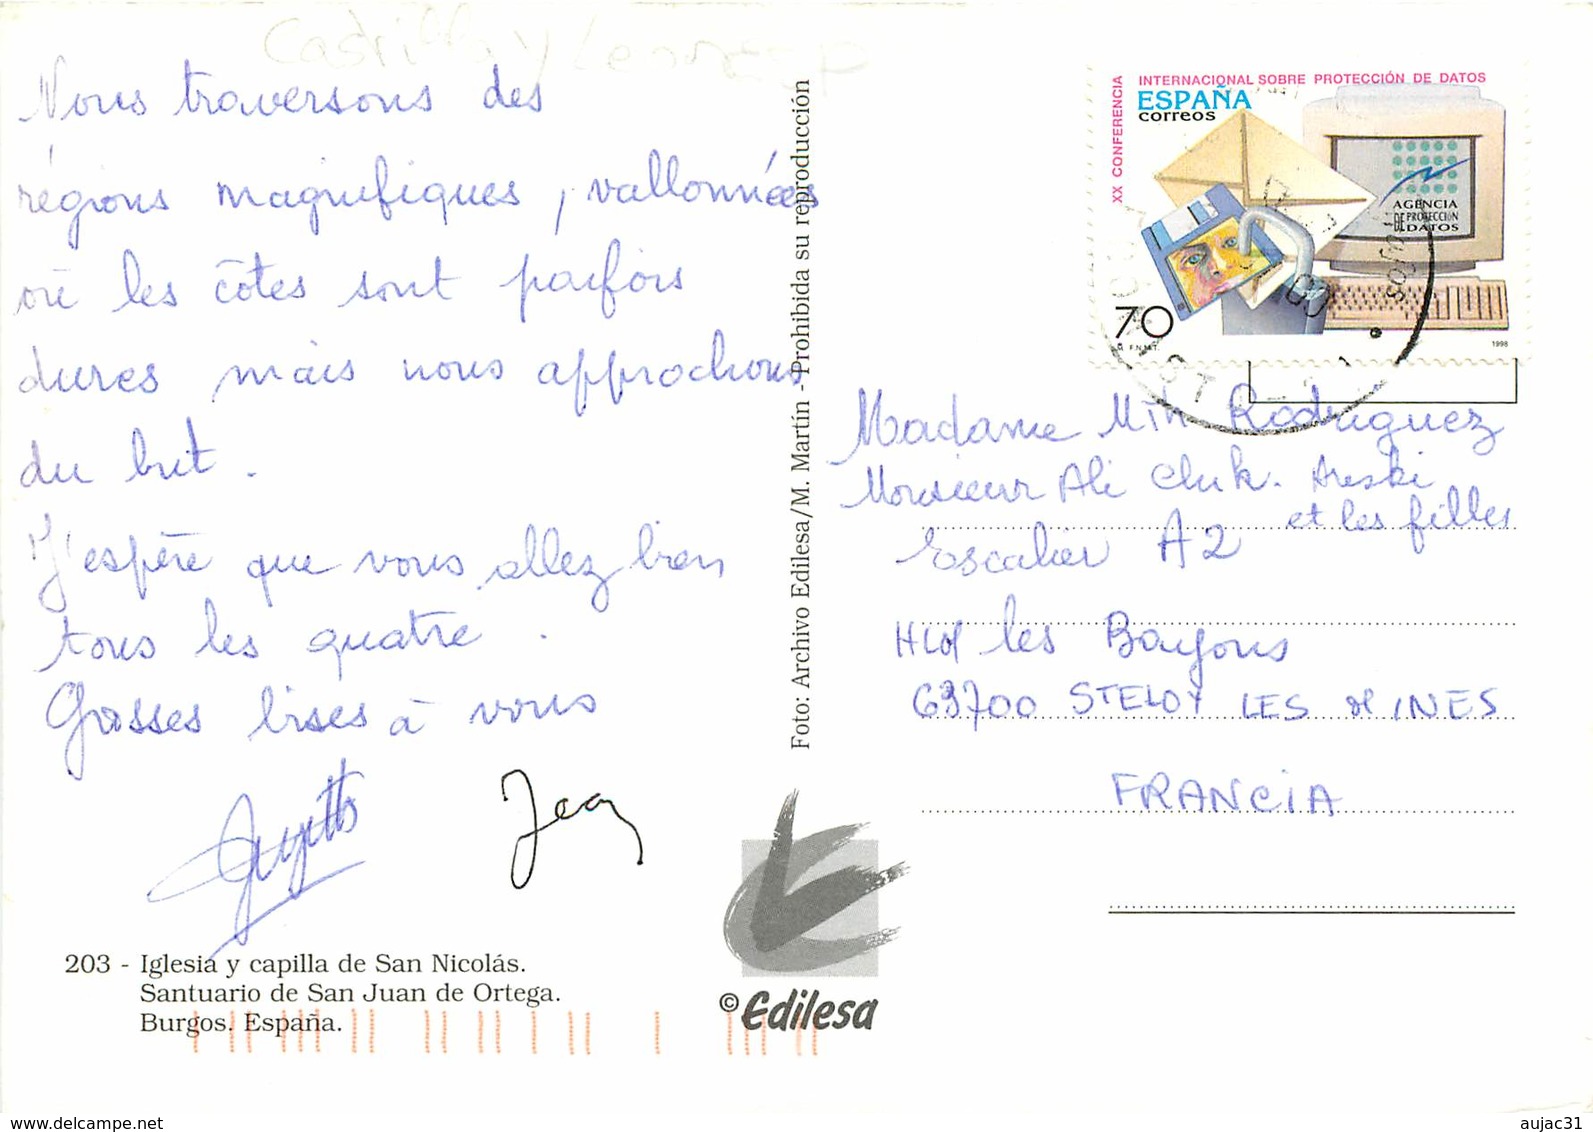 Castilla y Leon
Nous traversons des
régions magnifiques, vallonnées
où les côtes sont parfois
dures mais nous approchons
du but.
J'espère que vous allez bien
tous les quatre.
Grosses bises à vous
Jean
203 - Iglesia y capilla de San Nicolás.
Santuario de San Juan de Ortega.
Burgos. España.
Foto: Archivo Edilesa/M. Martín - Prohibida su reproducción
© Edilesa
XX CONFERENCIA
INTERNACIONAL SOBRE PROTECCIÓN DE DATOS
ESPAÑA
correos
AGENCIA
DE PROTECCIÓN
DE DATOS
70
F.N.M.T.
1998
Madame Rodriguez
Monsieur Ali Areski
et les filles
Escalier A2
HLM les Bayons
63700 ST ELOY LES MINES
FRANCIA
www.delcampe.net
aujac31